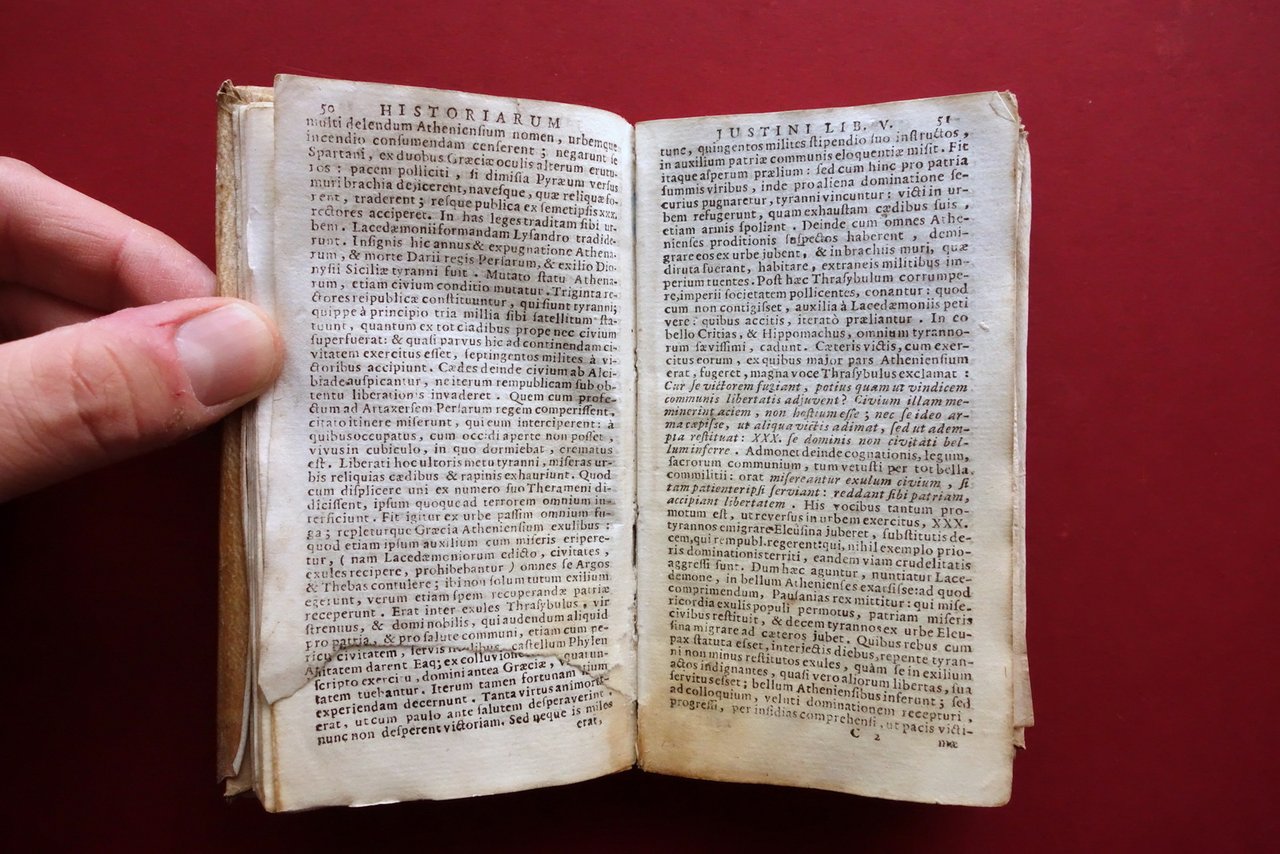 50 HISTORIARUM
multi delendum Atheniensium nomen, urbemque
incendio consumendam censerent; negarunt se
Spartani, ex duobus Græciæ oculis alterum erutu-
ros: pacem polliciti, si dimissa Pyræum versus
muri brachia dejicerent, navesque, quæ reliquæ fo-
rent, traderent; resque publica ex semetipsis xxx.
rectores acciperet. In has leges traditam sibi ur-
bem. Lacedæmonii formandam Lysandro tradide-
runt. Insignis hic annus & expugnatione Athena-
rum, & morte Darii regis Persarum, & exilio Dio-
nysii Siciliæ tyranni fuit. Mutato statu Athena-
rum, etiam civium conditio mutatur. Triginta re-
ctores reipublicæ constituuntur, qui fiunt tyranni;
quippe à principio tria millia sibi satellitum sta-
tuunt, quantum ex tot cladibus prope nec civium
superfuerat: & quasi parvus hic ad continendam ci-
vitatem exercitus esset, septingentos milites à vi-
ctoribus accipiunt. Cædes deinde civium ab Alci-
biade auspicantur, ne iterum rempublicam sub ob-
tentu liberationis invaderet. Quem cum profe-
ctum ad Artaxersem Persarum regem comperissent,
citato itinere miserunt, qui eum interciperent: à
quibus occupatus, cum occidi aperte non posset,
vivus in cubiculo, in quo dormiebat, crematus
est. Liberati hoc ultoris metu tyranni, miseras ur-
bis reliquias cædibus & rapinis exhauriunt. Quod
cum displicere uni ex numero suo Therameni di-
dicissent, ipsum quoque ad terrorem omnium in-
terficiunt. Fit igitur ex urbe passim omnium fu-
ga; repleturque Græcia Atheniensium exulibus:
quod etiam ipsum auxilium cum miseris eripere-
tur, (nam Lacedæmoniorum edicto, civitates,
exules recipere, prohibebantur) omnes se Argos
& Thebas contulere; ibi non solum tutum exilium
egerunt, verum etiam spem recuperandæ patriæ
receperunt. Erat inter exules Thrasybulus, vir
strenuus, & domi nobilis, qui audendum aliquid
pro patria, & pro salute communi, etiam cum pe-
ricu civitatem, servis castellum Phylen
darent Eaq; ex colluvione
scripto exerci u, domini antea Græciæ,
tatem tuebantur. Iterum tamen fortunam
experiendam decernunt. Tanta virtus animorum
erat, ut cum paulo ante salutem desperaverint,
nunc non desperent victoriam. Sed neque is miles
erat,
JUSTINI LIB. V. 51
tunc, quingentos milites stipendio suo instructos,
in auxilium patriæ communis eloquentiæ misit. Fit
itaque asperum prælium: sed cum hinc pro patria
summis viribus, inde pro aliena dominatione se-
curius pugnaretur, tyranni vincuntur: victi in ur-
bem refugerunt, quam exhaustam cædibus suis,
etiam armis spoliant. Deinde cum omnes Athe-
nienses proditionis suspectos haberent, demi-
grare eos ex urbe jubent, & in brachiis muri, quæ
diruta fuerant, habitare, extraneis militibus im-
perium tuentes. Post hæc Thrasybulum corrumpe-
re, imperii societatem pollicentes, conantur: quod
cum non contigisset, auxilia à Lacedæmoniis peti
vere: quibus accitis, iteratò præliantur. In co
bello Critias, & Hippomachus, omnium tyranno-
rum sævissimi, cadunt. Cæteris victis, cum exer-
citus eorum, ex quibus major pars Atheniensium
erat, fugeret, magna voce Thrasybulus exclamat:
Cur se victorem fugiant, potius quam ut vindicem
communis libertatis adjuvent? Civium illam me-
minerint aciem, non hostium esse; nec se ideo ar-
ma cæpisse, ut aliqua victis adimat, sed ut adem-
pta restituat: XXX. se dominis non civitati bel-
lum inferre. Admonet deinde cognationis, legum,
sacrorum communium, tum vetusti per tot bella
commilitii: orat misereantur exulum civium, si
tam patienter ipsi serviant: reddant sibi patriam,
accipiant libertatem. His vocibus tantum pro-
motum est, ut reversus in urbem exercitus, XXX.
tyrannos emigrare Eleusina juberet, substitutis de-
cem, qui rempubl. regerent: qui, nihil exemplo prio-
ris dominationis territi, eandem viam crudelitatis
aggressi sunt. Dum hæc aguntur, nuntiatur Lace-
demone, in bellum Athenienses exarsisse: ad quod
comprimendum, Pausanias rex mittitur: qui mise-
ricordia exulis populi permotus, patriam miseris
civibus restituit, & decem tyrannos ex urbe Eleu-
sina migrare ad cæteros jubet. Quibus rebus cum
pax statuta esset, interjectis diebus, repente tyran-
ni non minus restitutos exules, quàm se in exilium
actos indignantes, quasi vero aliorum libertas, sua
servitus esset; bellum Atheniensibus inferunt; sed
ad colloquium, veluti dominationem recepturi,
progressi, per insidias comprehensi, ut pacis victi-
C 2
mæ